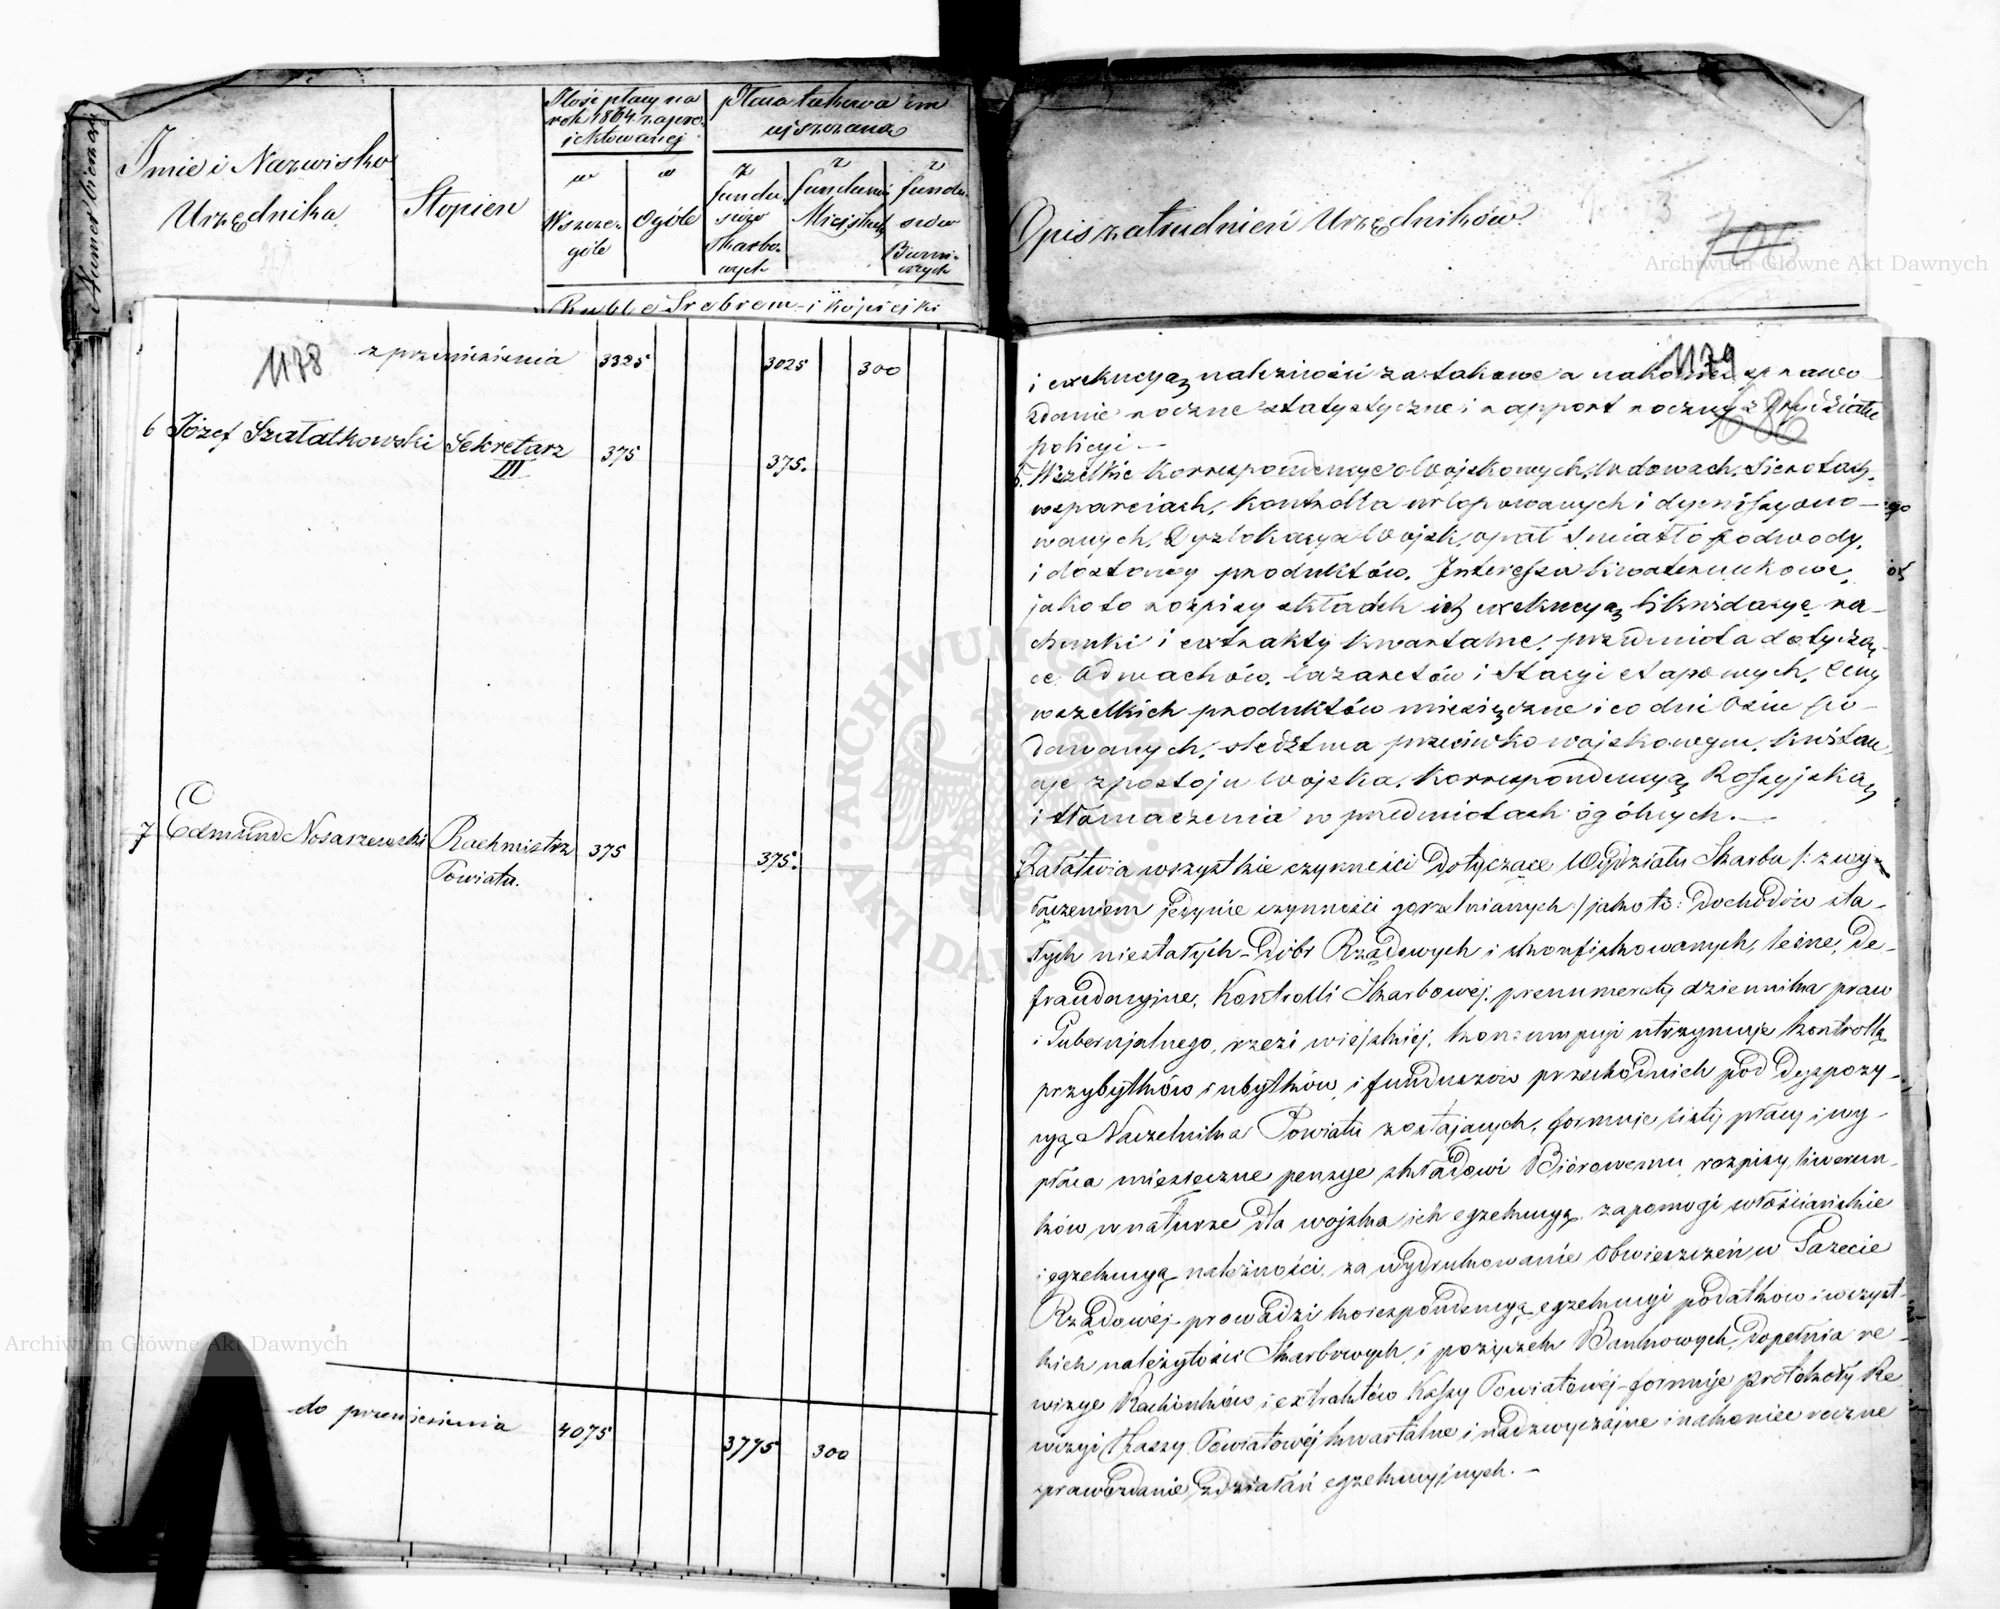 Numer bieżący
Imie i Nazwisko
Urzędnika
Stopien
Ilość płacy na
rok 1864 zapro-
jektowanej
w
Szcze-
góle
w
Ogóle
płaca takowa jest
uiszczana
z
fundu-
szów
Skarbo-
wych
z
funduszów
Miejskich
z
fundu-
szów
Ruble Srebrem i kopiejki
Opis zatrudnień Urzędników
706
1178
z przeniesienia 3325 3025 300
6 Józef Szałatkowski Sekretarz 375 375.
III
7 Edmund Nosarzewski Rachmistrz 375 375.
Powiatu.
do przeniesienia 4075 3775 300
1179
686
i exekucyą należności za takowe a nakoniec sprawo-
zdanie roczne statystyczne i rapport roczny z Wydziału
policyi —
6. Wszelkie korrespondencye o Wojskowych, wdowach, sierotach,
wsparciach, kontrolla urlopowanych i dymissyono-
wanych, Dyslokacya Wojsk, opał światło podwody,
i dostawy produktów. Interessa kwaterunkowe,
jakoto rozpisy składek ich exekucyą likwidacye ra-
chunki i extrakty kwartalne, przedmiota dotyczą-
ce Odwachów, lazaretów i Stacyi etapowych, Ceny
wszelkich produktów miesięczne i co dni Osiem po-
dawanych, śledztwa przeciwko wojskowym, kwitan-
cye z postoju Wojska, korrespondencyą Rossyjską
i tłomaczenia w przedmiotach ogólnych. —
7. Załatwia wszystkie czynności Dotyczące Wydziału Skarbu /: z wy-
łączeniem jedynie czynności gorzelnianych :/ jakoto: Dochodów sta-
łych niestałych Dóbr Rządowych i skonfiskowanych, leśne, De-
fraudacyjne, Kontrolli Skarbowéj, prenumeraty dziennika praw
i Gubernjalnego, rzezi wiejskiej, konsumpcji utrzymuje kontrollą
przybytków i ubytków, i funduszów przechodnich pod Dyspozy-
cyą Naczelnika Powiatu zostających, formuje listy płacy i wy-
płaca miesięczne pensye składowi Biórowemu, rozpisy kwerun-
ków w naturze Dla wojska ich egzekucyą, zapomogi włościańskie
i egzekucyą należności, za wydrukowanie obwieszczeń w Gazecie
Rządowéj prowadzi korespondencyą egzekucyi podatków i wszyst-
kich należytości Skarbowych, i pożyczek Bankowych, Dopełnia re-
wizye Rachunków i extraktów Kassy Powiatowéj formuje protokoły Re-
wizyi Kassy Powiatowéj kwartalne i nadzwyczajne i nakoniec roczne
sprawozdanie z działań egzekucyjnych. —
Archiwum Główne Akt Dawnych
Archiwum Główne Akt Dawnych
ARCHIWUM GŁÓWNE AKT DAWNYCH